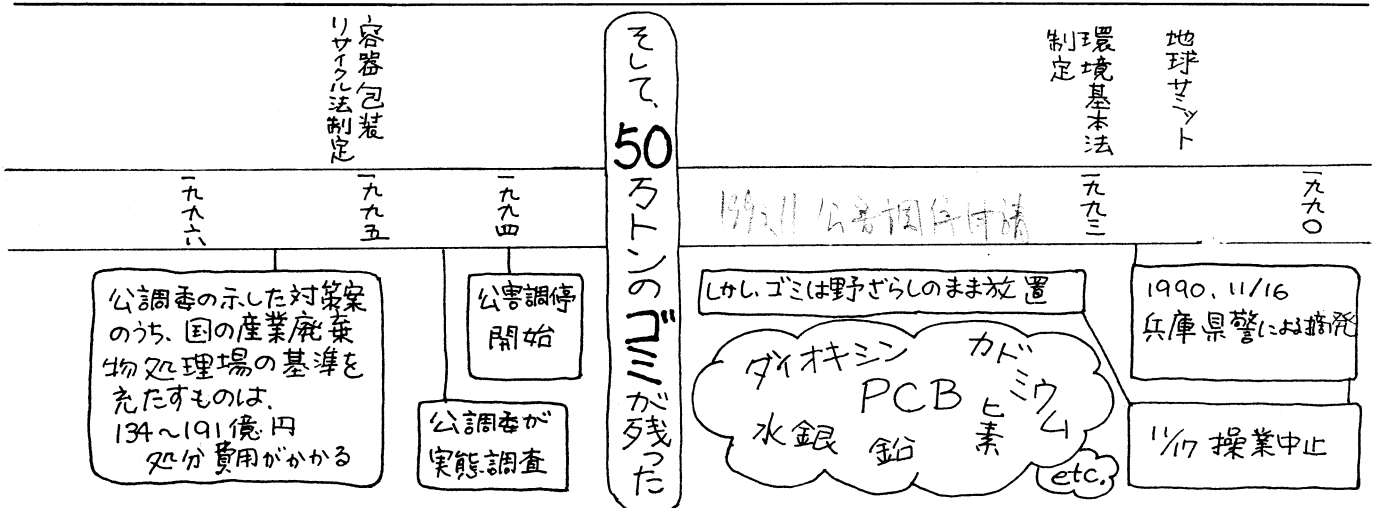 地球サミット
環境基本法
制定
そして、50万トンのゴミが残った
容器包装
リサイクル法制定
一九九〇
一九九三
公害調停申請
一九九四
一九九五
一九九六
1990.11/16
兵庫県警による摘発
11/17 操業中止
しかし、ゴミは野ざらしのまま放置
ダイオキシン
カドミウム
PCB
ヒ素
水銀
鉛
etc.
公害調停
開始
公調委が
実態調査
公調委の示した対策案
のうち、国の産業廃棄
物処理場の基準を
充たすものは、
134〜191億円
処分費用がかかる